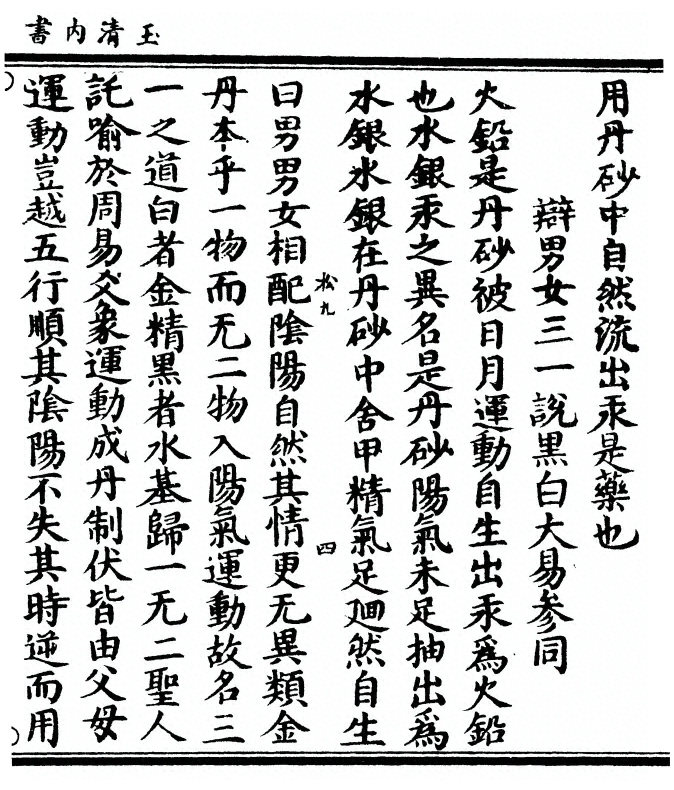 玉清內書
用丹砂中自然流出汞是藥也
辯男女三一說黑白大易參同
火鉛是丹砂被日月運動自生出汞爲火鉛
也水銀汞之異名是丹砂陽氣未足抽出爲
水銀水銀在丹砂中含甲精氣足廻然自生
曰男男女相配陰陽自然其情更无異類金
松九
四
丹本乎一物而无二物入陽氣運動故名三
一之道白者金精黑者水基歸一无二聖人
託喻於周易爻象運動成丹制伏皆由父母
運動豈越五行順其陰陽不失其時逆而用